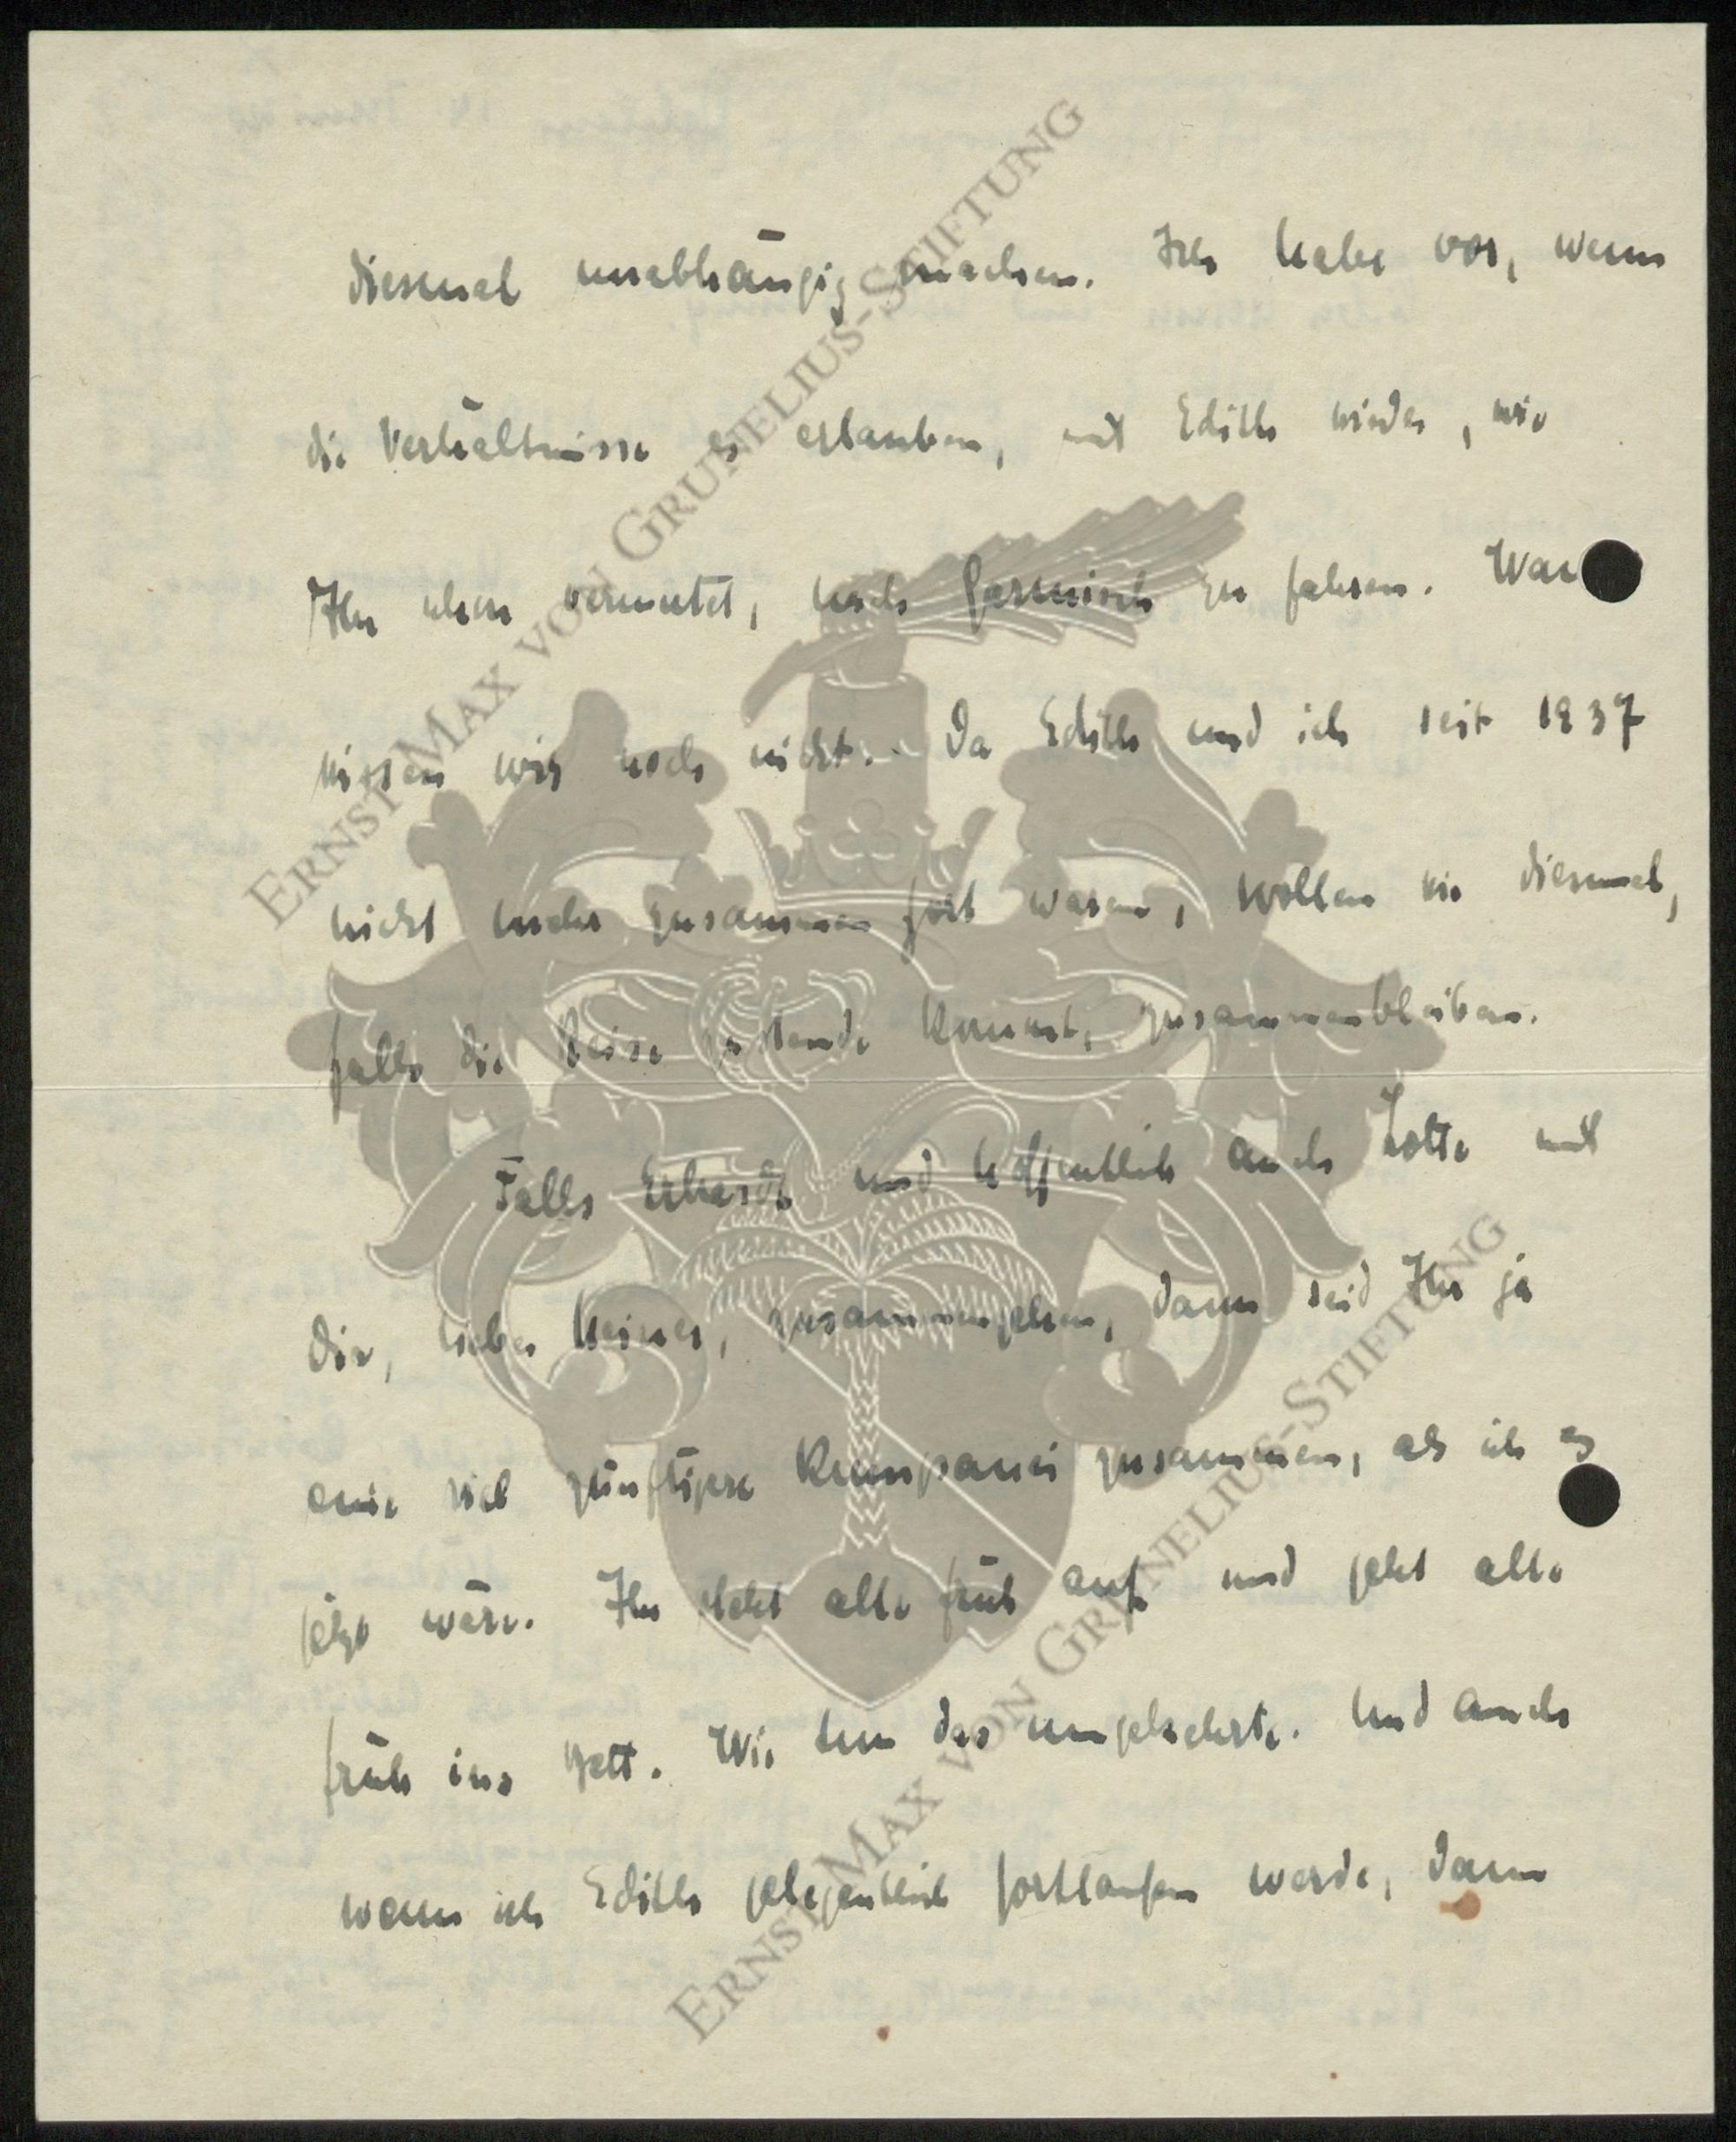 diesmal unabhängig machen. Ich habe vor, wenn
die Verhältnisse es erlauben, mit Edith wieder, wie
Ihr schon vermutet, nach Garmisch zu fahren. Wann
wissen wir noch nicht. Da Edith und ich seit 1937
nicht mehr zusammen fort waren, wollen wir diesmal,
falls die Reise zustande kommt, zusammenbleiben.
Falls Erhardt und hoffentlich auch Lotte mit
dir, lieber Heiner, zusammengehen, dann seid Ihr ja
eine viel zünftigere Kumpanei zusammen, als ich es
jetzt wäre. Ihr steht alle früh auf und geht alle
früh ins Bett. Wir tun das umgekehrte. Und auch
wenn ich Edith gelegentlich fortlaufen werde, dann
ERNST MAX VON GRUNELIUS-STIFTUNG
ERNST MAX VON GRUNELIUS-STIFTUNG